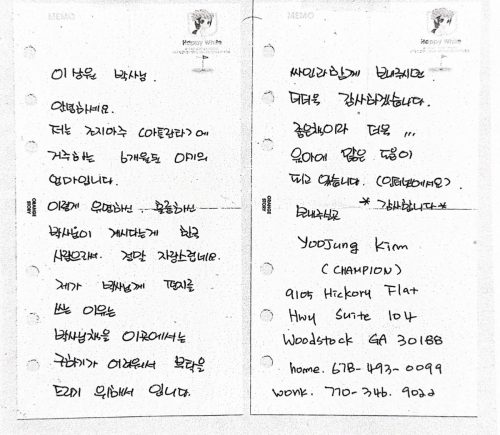 MEMO
Happy White
이남은 박사님.
안녕하세요.
저는 조지아주 (아트란타)에
거주하는 6개월된 아기의
엄마입니다.
이렇게 유명하신. 훌륭하신
박사님이 계시다는게 한국
사람으로써. 정말 자랑스럽네요.
제가 박사님께 편지를
쓰는 이유는
박사님책을 이곳에서는
구하기가 어려워서 부탁을
드리기 위해서 입니다.
ORANGE STORY
MEMO
Happy White
싸인과함께 보내주시면
더더욱 감사하겠습니다.
좋은책이라 더욱 ...
육아에 많은 도움이
되고 있습니다. (인터넷에서요).
보내주실곳 * 감사합니다 *
YooJung Kim
(CHAMPION)
9105 Hickory Flat
Hwy Suite 104
Woodstock GA 30188
home. 678-493-0099
work. 770-346. 9022
ORANGE STORY